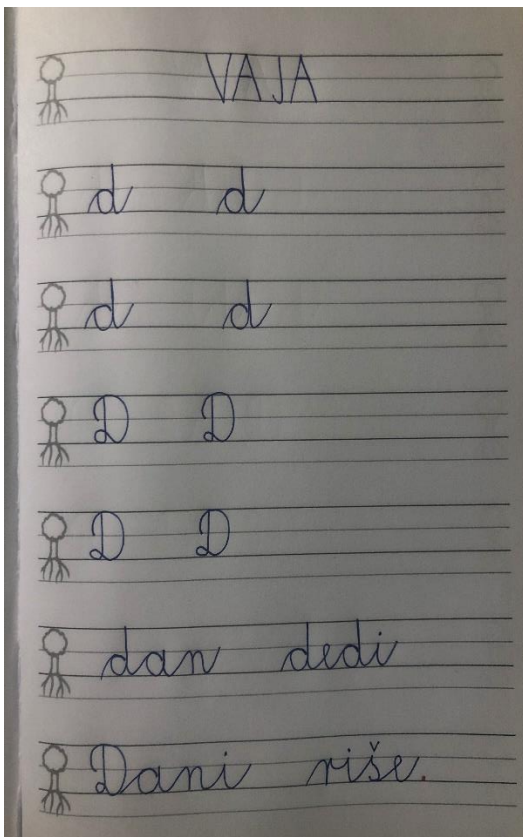 VAJA
d d
d d
D D
D D
dan dedi
Dani riše.